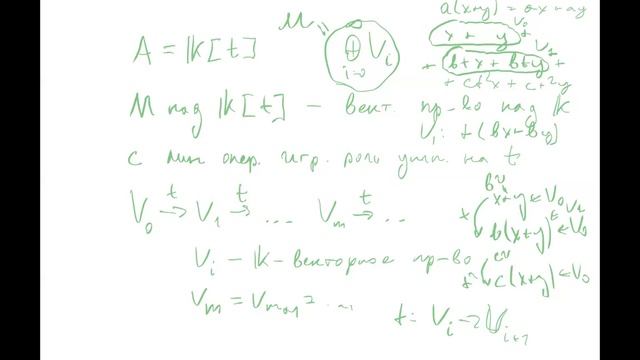 A = 𝕜[t]
M = ⊕ V_i
i=0
a(x+y) = ax + ay
x + y V_0
+ btx + bty + V_1
+ ct²x + ct²y
M над 𝕜[t] – вект. пр-во над 𝕜
V_1: t(bx + by)
с лин. опер. игр. роль умн. на t
V_0 →t V_1 →t ... V_m →t ...
x+y ∈ V_0
b(x+y) ∈ V_0
c(x+y) ∈ V_0
V_i – 𝕜-векторное пр-во
V_m = V_{m+1} = ...
t: V_i → V_{i+1}